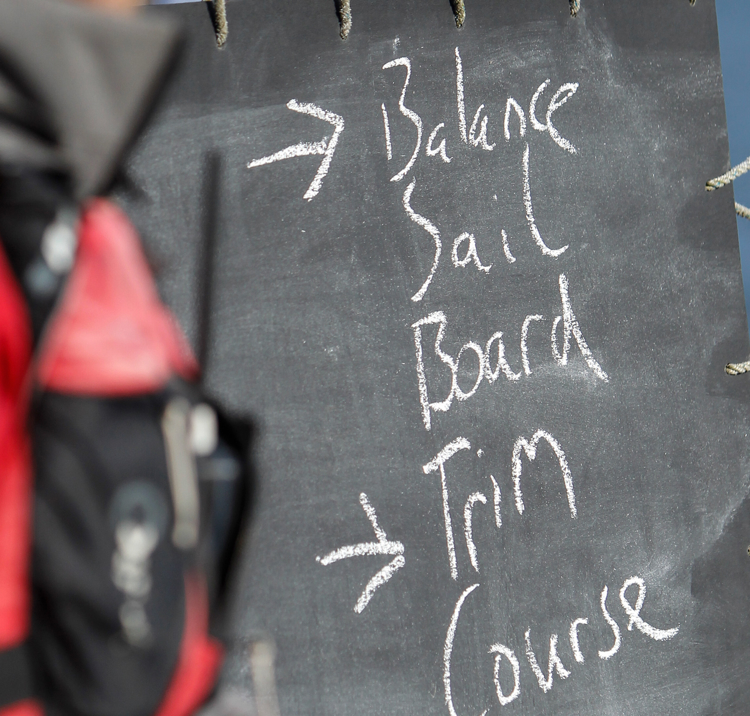 → Balance
Sail
Board
Trim
→ Course